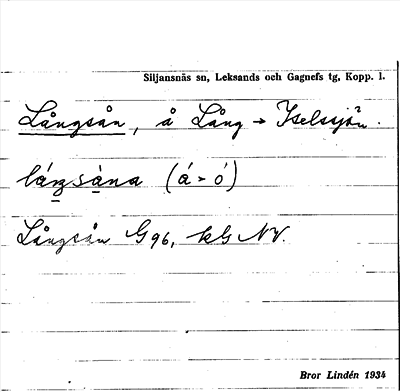 Siljansnäs sn, Leksands och Gagnefs tg, Kopp. l.
Långsån, å Lång → Yselssjön.
lángsȧna (á > ó)
Långsån G 96, kG NV.
Bror Lindén 1934